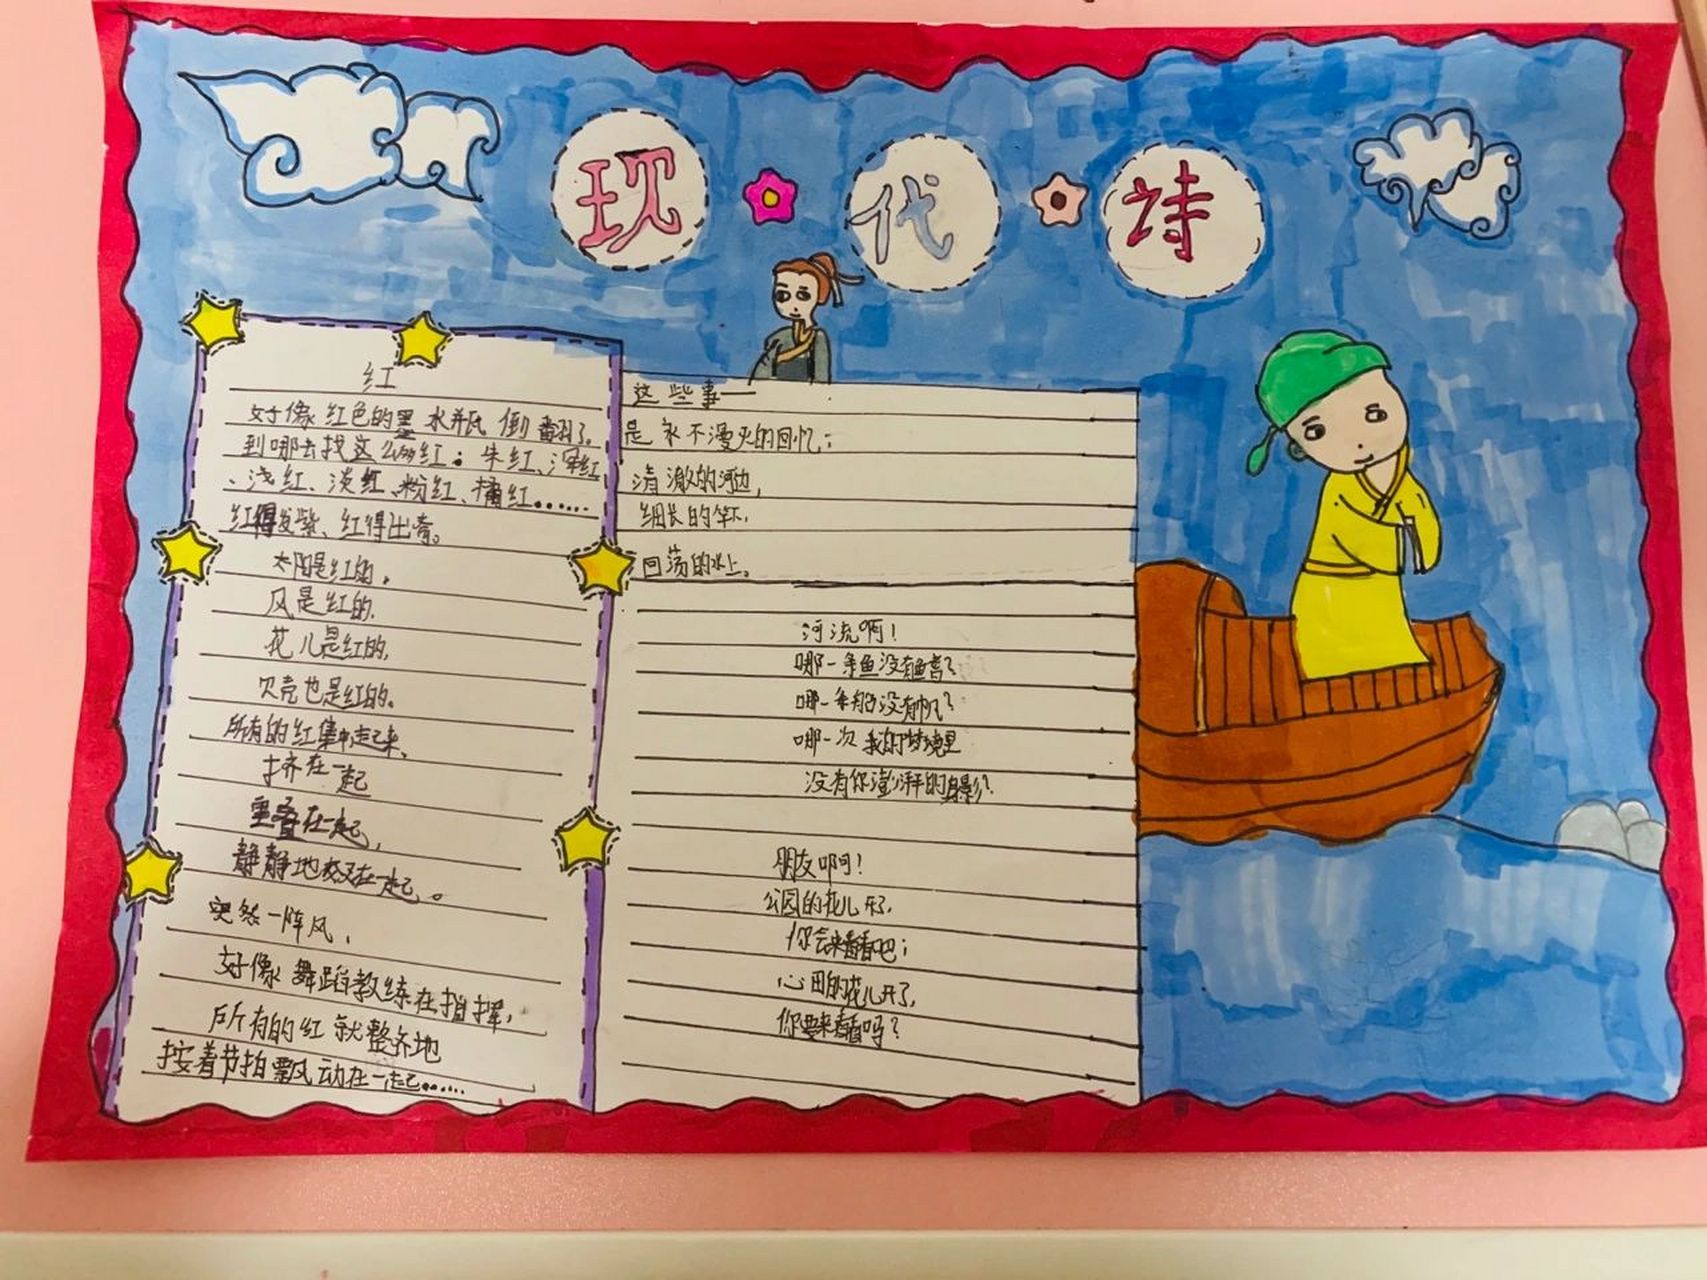 现代诗
红
好像红色的墨水瓶倒翻了。
到哪去找这么多红：朱红、深红
、浅红、淡红、粉红、橘红……
红得发紫、红得出奇。
太阳是红的，
风是红的，
花儿是红的，
贝壳也是红的。
所有的红集中起来，
挤在一起
重叠在一起，
静静地交叉在一起。
突然一阵风，
好像舞蹈教练在指挥，
所有的红就整齐地
按着节拍飘动在一起……
这些事——
是永不漫灭的回忆；
清澈的河边，
细长的竿下，
回荡的水上。
河流啊！
哪一条鱼没有鱼言？
哪一条船没有帆？
哪一次我的梦境里
没有你澎湃的身影？
朋友啊！
公园的花儿开了，
你会来看看吧；
心田的花儿开了，
你要来看看吗？